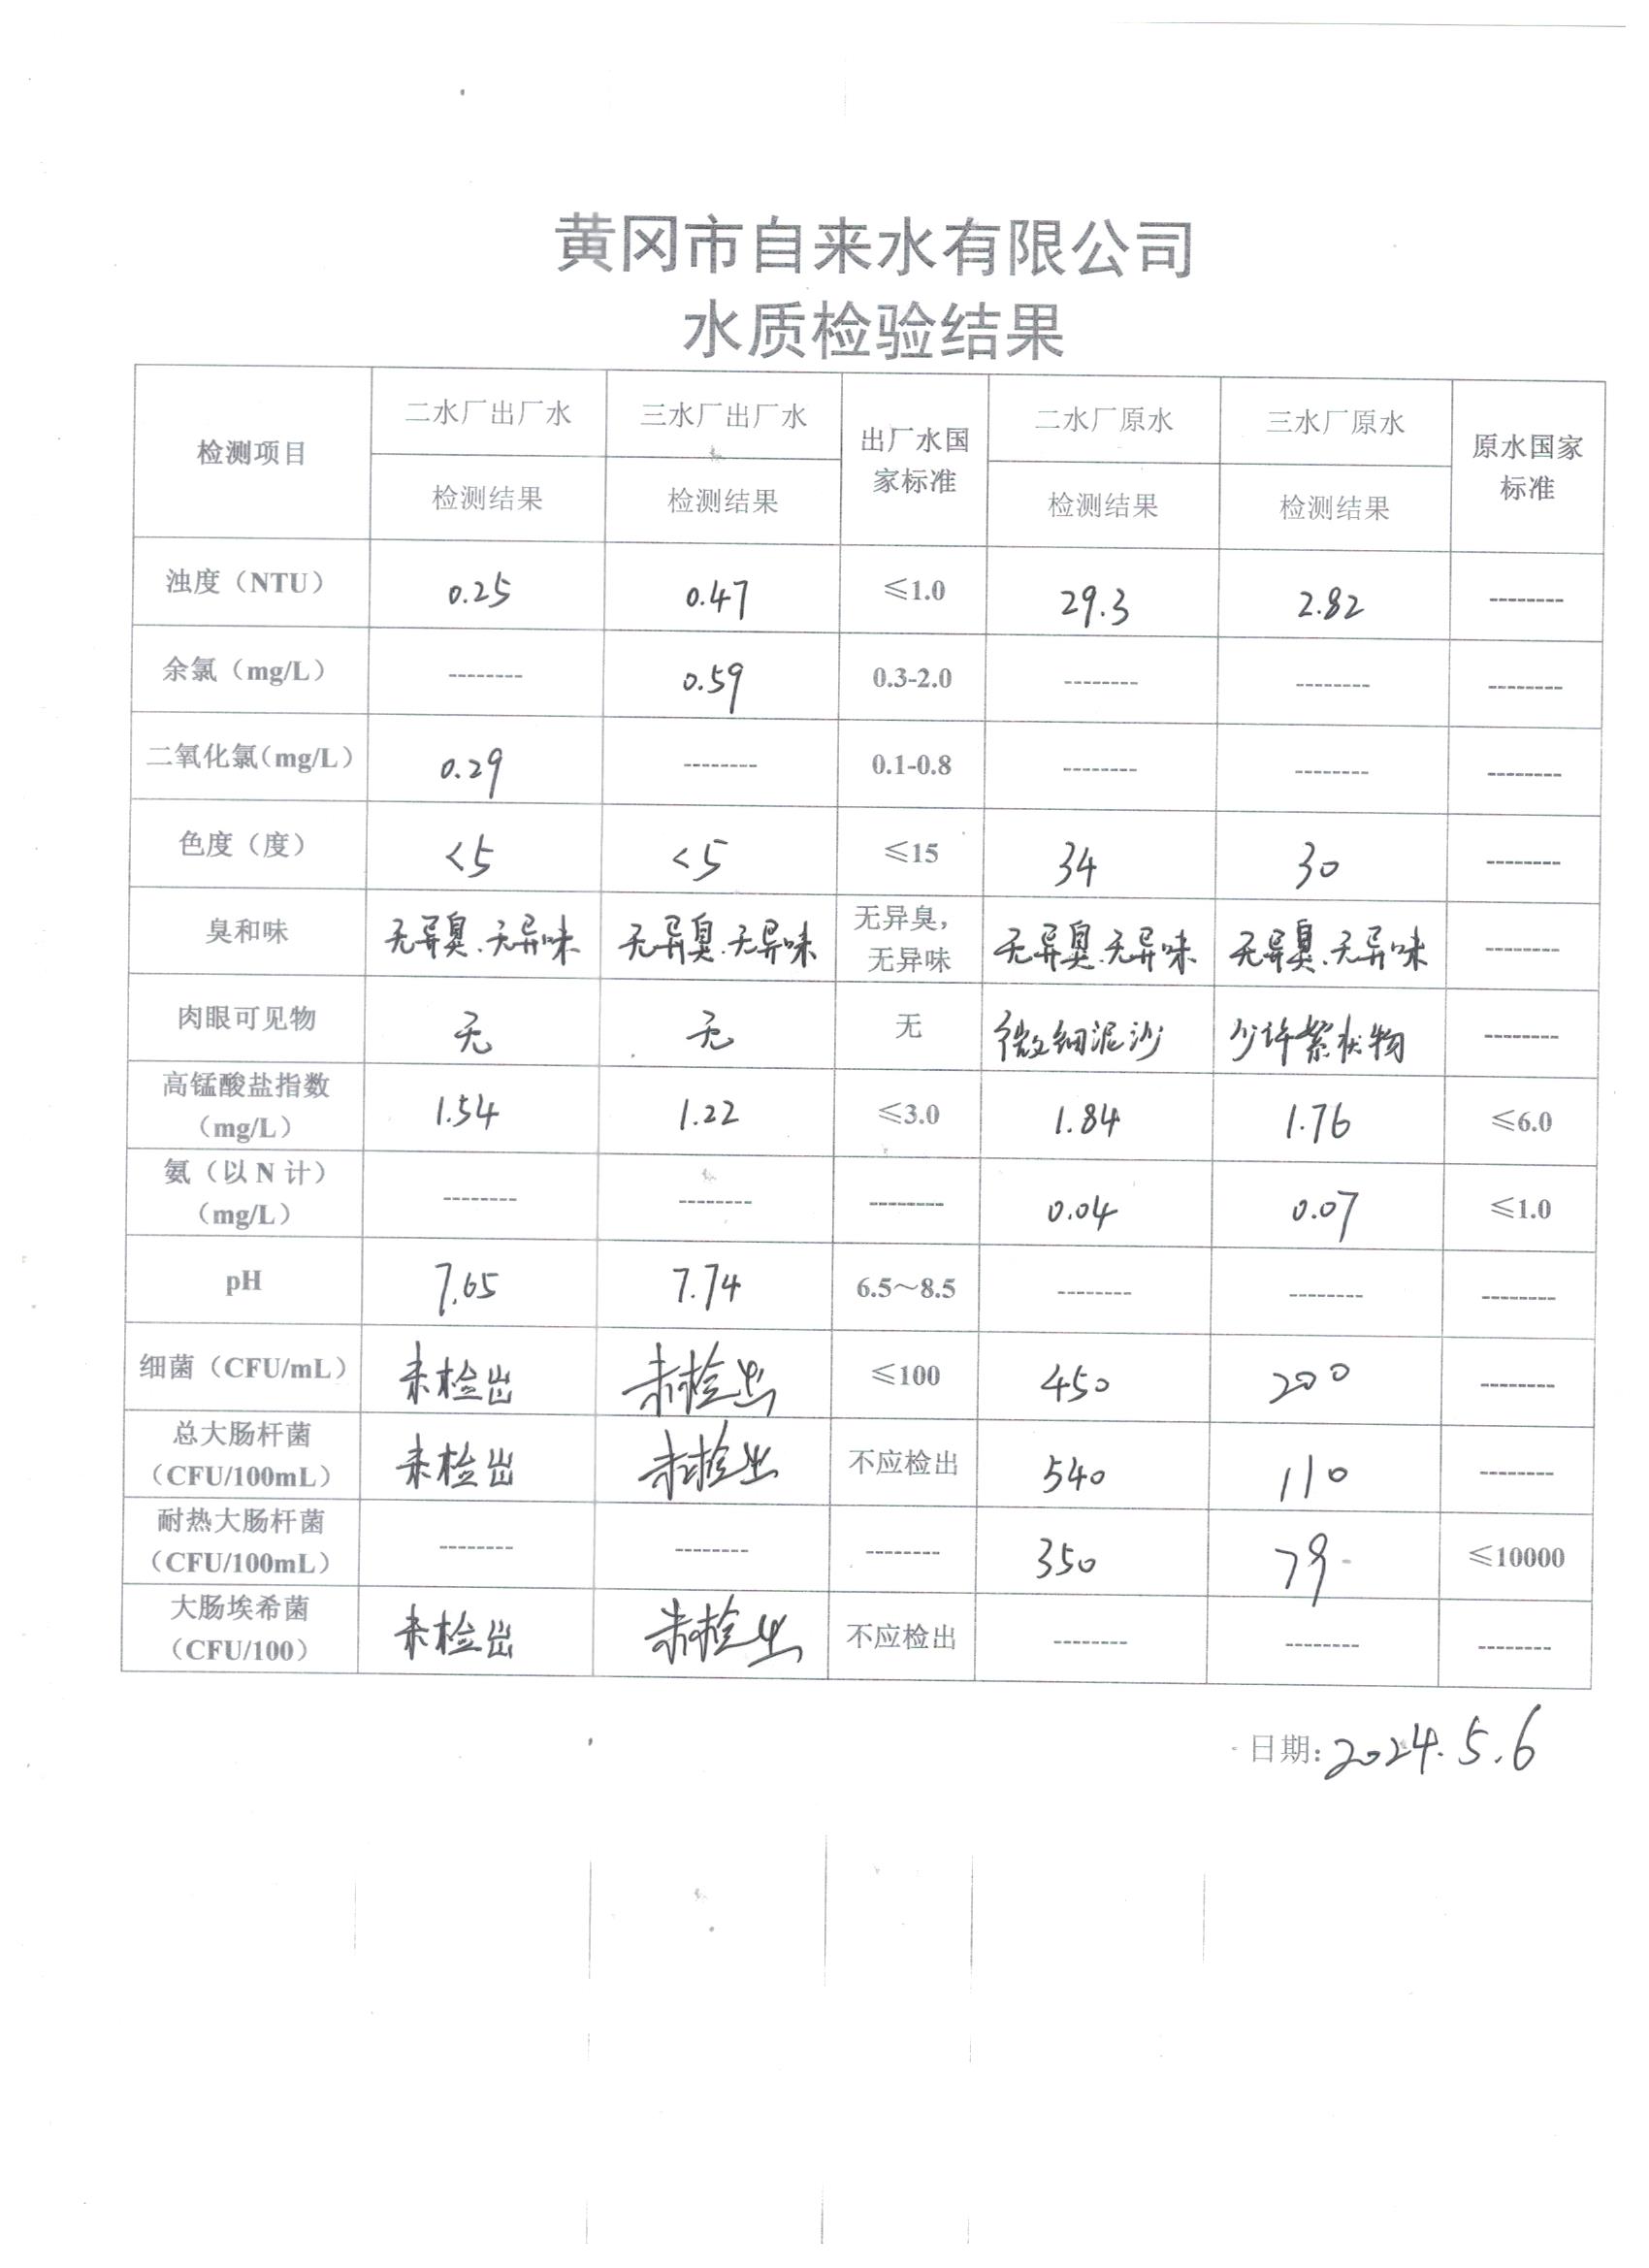 黄冈市自来水有限公司
水质检验结果
检测项目 二水厂出厂水 三水厂出厂水 出厂水国家标准 二水厂原水 三水厂原水 原水国家标准
检测结果 检测结果 检测结果 检测结果
浊度（NTU） 0.25 0.47 ≤1.0 29.3 2.82 --------
余氯（mg/L） -------- 0.59 0.3-2.0 -------- -------- --------
二氧化氯（mg/L） 0.29 -------- 0.1-0.8 -------- -------- --------
色度（度） <5 <5 ≤15 34 30 --------
臭和味 无异臭.无异味 无异臭.无异味 无异臭，无异味 无异臭.无异味 无异臭.无异味 --------
肉眼可见物 无 无 无 微细泥沙 少许絮状物 --------
高锰酸盐指数（mg/L） 1.54 1.22 ≤3.0 1.84 1.76 ≤6.0
氨（以 N 计）（mg/L） -------- -------- -------- 0.04 0.07 ≤1.0
pH 7.65 7.74 6.5～8.5 -------- -------- --------
细菌（CFU/mL） 未检出 未检出 ≤100 450 200 --------
总大肠杆菌（CFU/100mL） 未检出 未检出 不应检出 540 110 --------
耐热大肠杆菌（CFU/100mL） -------- -------- -------- 350 79 ≤10000
大肠埃希菌（CFU/100） 未检出 未检出 不应检出 -------- -------- --------
日期: 2024.5.6